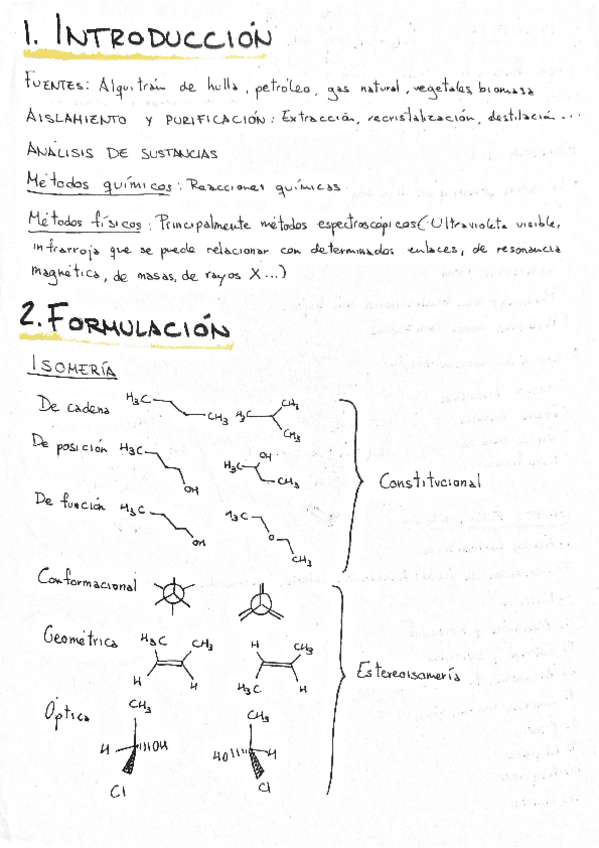 1. INTRODUCCIÓN
FUENTES: Alquitrán de hulla, petróleo, gas natural, vegetales, biomasa
AISLAMIENTO Y PURIFICACIÓN: Extracción, recristalización, destilación...
ANÁLISIS DE SUSTANCIAS
Métodos químicos: Reacciones químicas.
Métodos físicos: Principalmente métodos espectroscópicos (Ultravioleta visible,
infrarroja que se puede relacionar con determinados enlaces, de resonancia
magnética, de masas, de rayos X...)
2. FORMULACIÓN
ISOMERÍA
De cadena H3C CH3 H3C CH3 CH3
De posición H3C OH H3C OH CH3
De función H3C OH H3C O CH3
Constitucional
Conformacional
Geométrica H3C CH3 H H H CH3 H3C H
Óptica CH3 H OH Cl CH3 HO H Cl
Estereoisomería